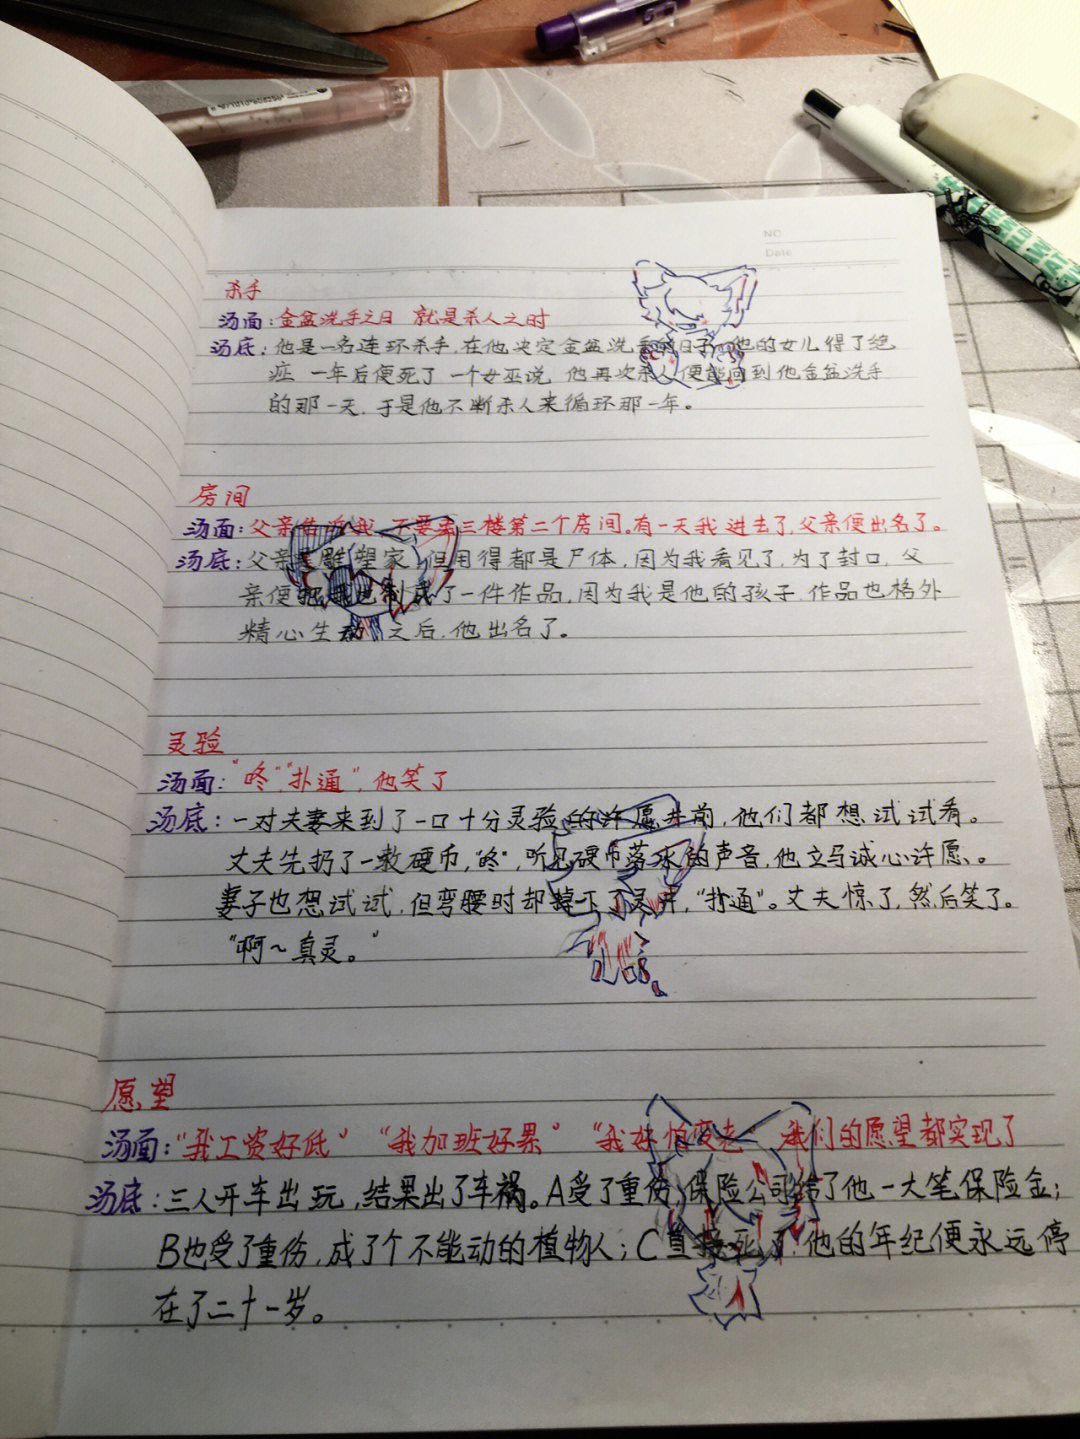 NO
Date
杀手
汤面:金盆洗手之日 就是杀人之时
汤底:他是一名连环杀手,在他决定金盆洗手的日子,他的女儿得了绝
症 一年后便死了 一个女巫说,他再次杀人便能回到他金盆洗手
的那一天,于是他不断杀人来循环那一年。
房间
汤面:父亲告诉我,不要来三楼第二个房间。有一天我进去了,父亲便出名了。
汤底:父亲是雕塑家,但用得都是尸体,因为我看见了,为了封口,父
亲便把我也制成了一件作品,因为我是他的孩子,作品也格外
精心生动 之后,他出名了。
灵验
汤面:“咚”“扑通”,他笑了
汤底:一对夫妻来到了一口十分灵验的许愿井前,他们都想试试看。
丈夫先扔了一敉硬币,“咚”,听见硬币落水的声音,他立马诚心许愿、。
妻子也想试试,但弯腰时却掉下了灵井,“扑通”。丈夫惊了,然后笑了。
“啊~真灵。”
愿望
汤面:“我工资好低”“我加班好累”“我好怕变老” 我们的愿望都实现了
汤底:三人开车出玩,结果出了车祸。A受了重伤,保险公司给了他一大笔保险金;
B也受了重伤,成了个不能动的植物人;C直接死了,他的年纪便永远停
在了二十一岁。